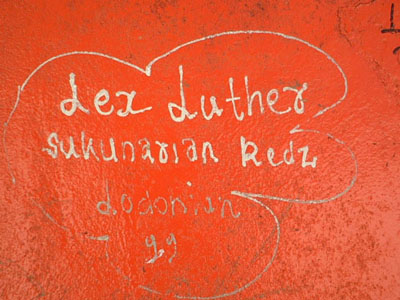 Lex Luther
Sukunarian Redz
Lodonian
99